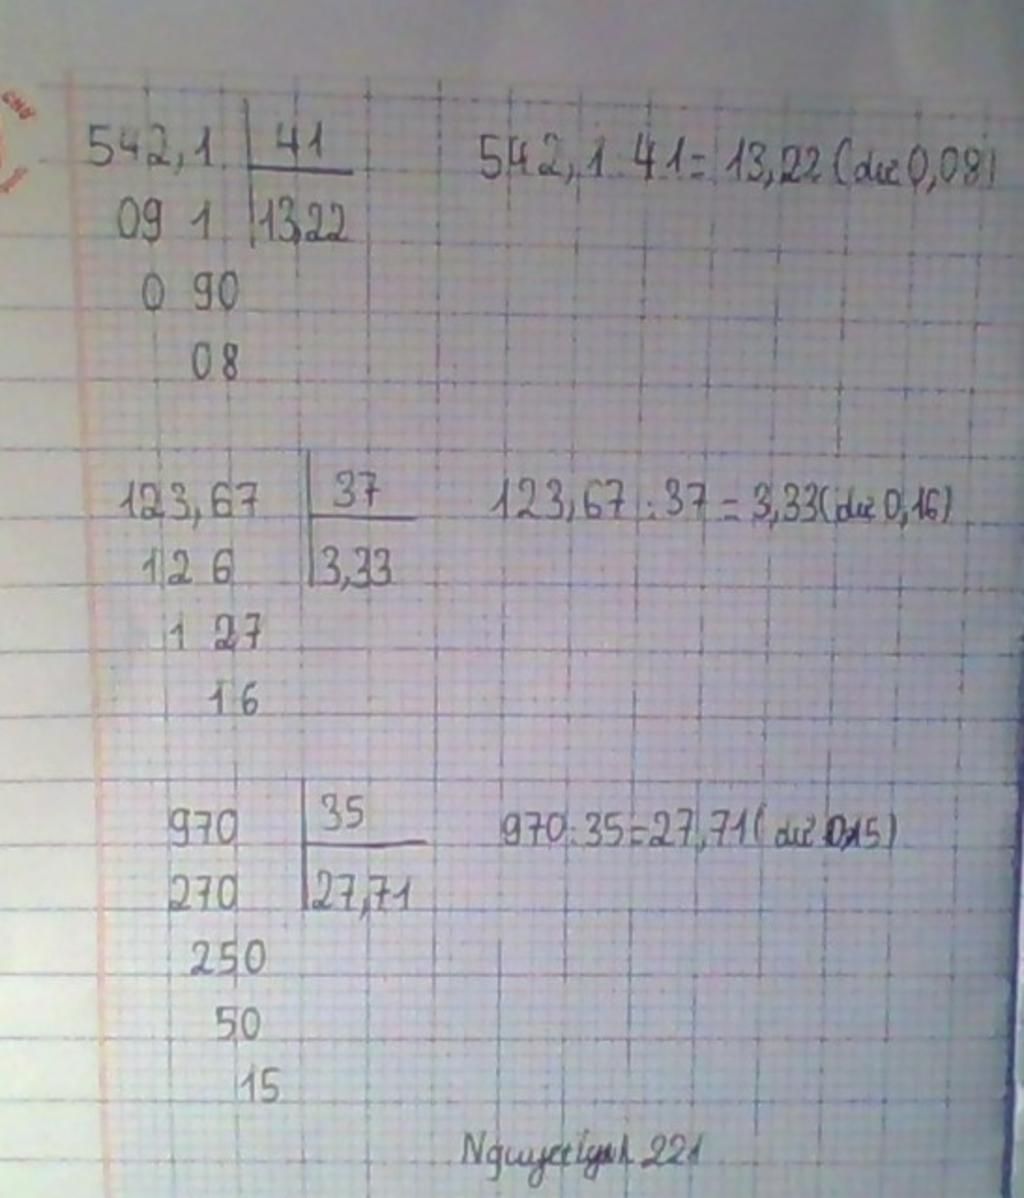 542,1 41 542,1 41 = 13,22 (dư 0,08)
09 1 13,22
0 90
08
123,67 37 123,67 : 37 = 3,33 (dư 0,16)
12 6 3,33
1 27
16
970 35 970 : 35 = 27,71 (dư 0,15)
270 27,71
250
50
15
221